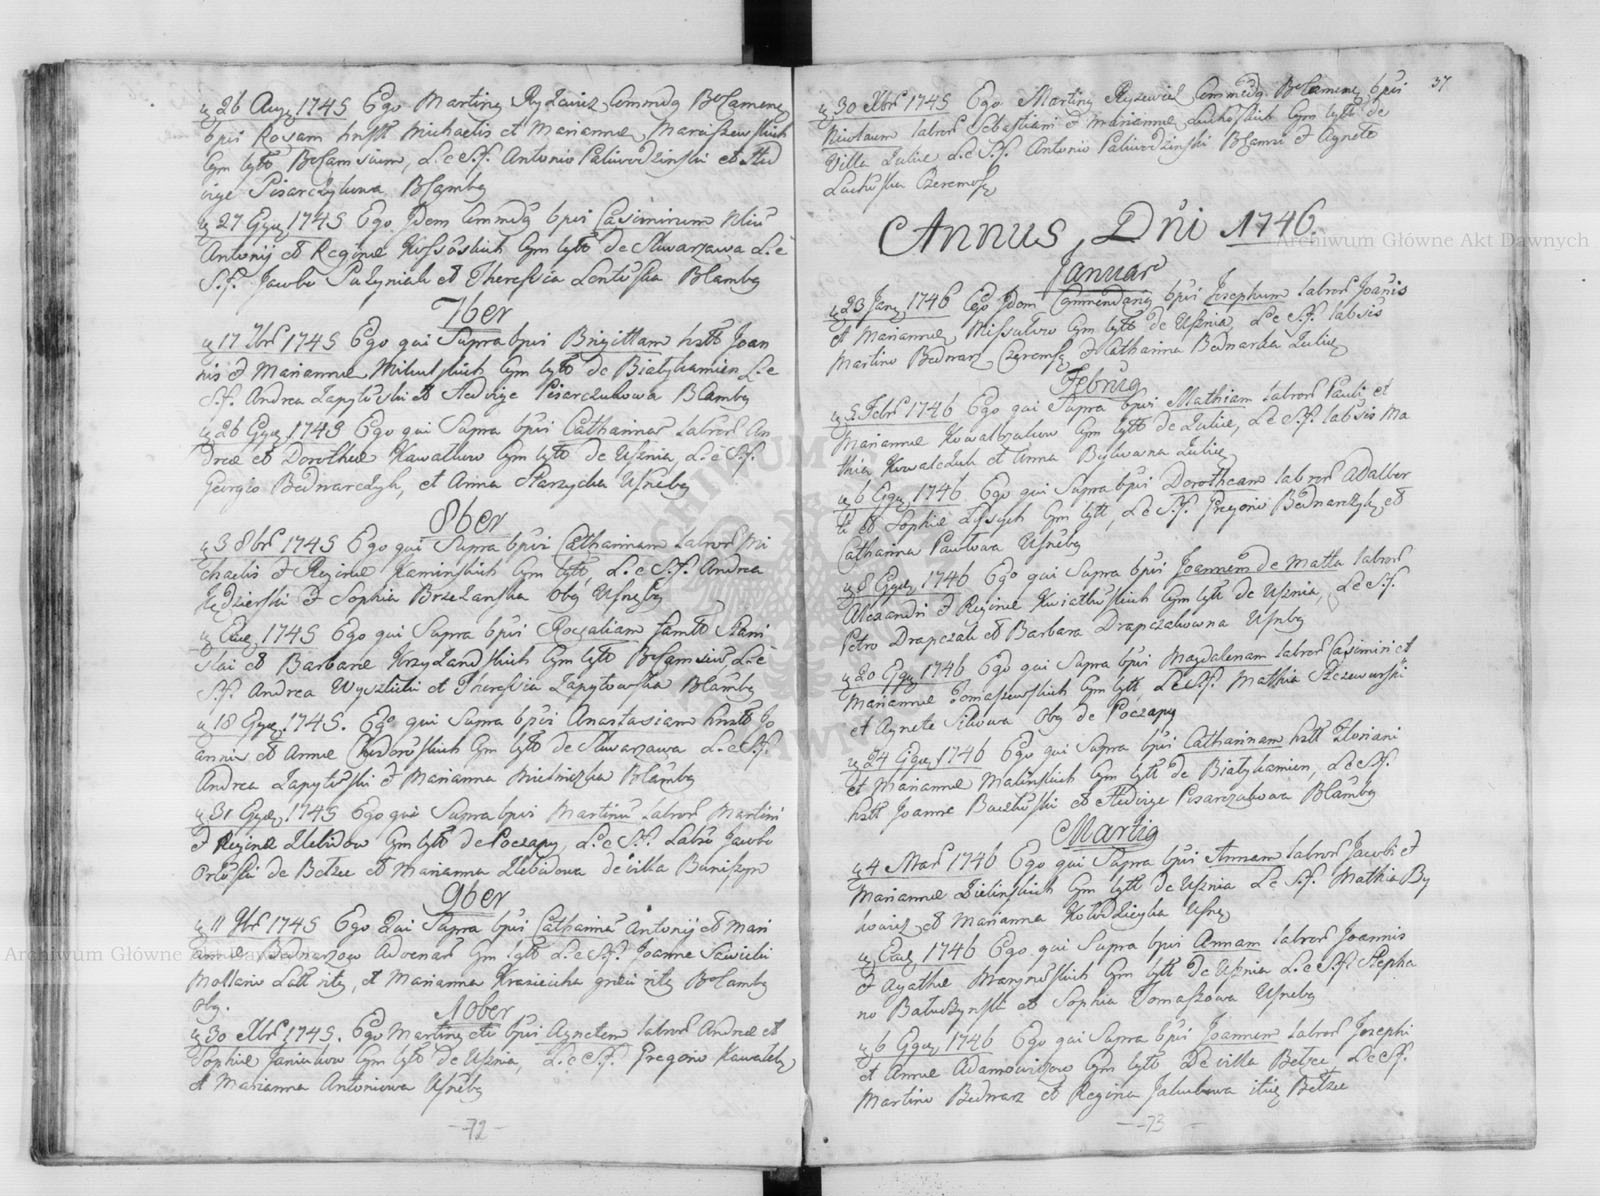 26 Aug 1745 Ego Martinq Ryzewicz Commdq Bcamenq
bpsi Rosam hnstt Michaelis et Marianne Maruszewskich
Cym lgtt Bcamsium, L. e S.f. Antonio Paliwodzinski et Hed
vige Pisarczykowa Bcambq
27 Ejq 1745 Ego Idem Commdq bpsi Casimirum
Antonij et Regine Kossowskich Cym lgtt de Skwarzawa L. e
S.f. Jacobo Puzyniak et Theressia Lentowska Bcambq
7ber
17 7br 1745 Ego qui Supra bpsi Brigittam hstt Joan
nis et Marianne Mikulskich Cym lgtt de Białykamien L. e
S.f. Andrea Zapytowski et Hedvige Pisarczukowa Bcambq
26 Ejq 1745 Ego qui Supra bpsi Catharinam Labror An
dree et Dorothee Kawalkow Cym lgtt de Usznia, L. e S.f.
Georgio Bednarczyk, et Anna Starzycka Usznebq
8ber
3 8br 1745 Ego qui Supra bpsi Catharinam Labror Mi
chaelis et Regine Kaminskich Cym lgtt, L. e S.f. Andrea
Jedzierski et Sophia Brzezanska Obq Usznebq
Ead 1745 Ego qui Supra bpsi Rosaliam famtt Stani
slai et Barbare Krzyzanskich Cym lgtt Bcamsiu L. e
S.f. Andrea Wyszlicki et Theressia Zapytowska Bcambq
18 Ejq 1745. Ego qui Supra bpsi Anastasiam hnstt Jo
annis et Anne Chodorowskich Cym lgtt de Skwarzawa L. e S.f.
Andrea Zapytowski et Marianna Bcambq
31 Ejq 1745 Ego qui Supra bpsi Martinu Labror Martini
et Regine Hlebidow Cym lgtt de Poczapy, L. e S.f. Labro Jacobo
Orlowski de Bełzec et Marianna Hlebidowa de villa Buniszyn
9ber
11 9br 1745 Ego Qui Supra bpsi Catharina Antonij et Mari
anne Bednarzow Advenar Cym lgtt L. e S.f. Joanne Sawicki
Latt ritq, et Marianna Krasiecka greci ritq Bcambq
Obq.
10ber
30 Xbr 1745. Ego Martinq etc bpsi Agnetem Labror Andree et
Sophie Janiukow Cym lgtt de Usznia, L. e S.f. Gregorio Kawalek,
et Marianna Antoniowa Usznebq
-72-
37
30 Xbr 1745 Ego Martinq Ryzewicz Commdq Bcamenq bpsi
Nicolaum labror Sebastiani et Marianne Luchoskich Cym lgtt de
Villa Zulice L. e S.f. Antonio Paliwodzinski Bcamsi et Agnete
Luchoska Czeremosz
Annus Dni 1746.
Januar
23 Janq 1746 Ego Idem Commendariq bpsi Josephum labror Joanis
et Marianne Missalow Cym lgtt de Usznia, L. e S.f. labsis
Martino Bednarz Czeremsz et Catharina Bednarka Zulice
Februq
5 Febr 1746 Ego qui Supra bpsi Mathiam labror Pauli et
Marianne Kowalczukow Cym lgtt de Zulice, L. e S.f. labsis Ma
thia Kowalczuk et Anna Zulice
6 Ejq 1746 Ego qui Supra bpsi Dorotheam labror Adalber
ti et Sophie Łysych Cym lgtt, L. e S.f. Gregorio Bednarczyk, et
Catharina Pawłowa Usznebq
8 Ejq 1746 Ego qui Supra bpsi Joannem de Matta labror
Alexandri et Regine Kwiatkowskich Cym lgtt de Usznia, L. e S.f.
Petro Drapczak et Barbara Drapczakowna Usznbq
20 Ejq 1746 Ego qui Supra bpsi Magdalenam labror Casimiri et
Marianne Tomaszewskich Cym lgtt L. e S.f. Mathia Szczewurski
et Agnete Silwowa Obq de Poczapy
24 Ejq 1746 Ego qui Supra bpsi Catharinam hstt Floriani
et Marianne Malinskich Cym lgtt de Białykamien, L. e S.f.
hstt Joanne Baczkowski et Hedvige Pisarczukowa Bcambq
Martiq
4 Mar 1746 Ego qui Supra bpsi Annam labror Jacobi et
Marianne Zielinskich Cym lgtt de Usznia L. e S.f. Mathia By
kowicz et Marianna Kołodzieyka Usznq
Ead 1746 Ego qui Supra bpsi Annam labror Joannis
et Agathe Marynowskich Cym lgtt de Usznia L. e S.f. Stepha
no Batuszynski et Sophia Tomaszowa Usznebq
6 Ejq 1746 Ego qui Supra bpsi Joannem labror Josephi
et Anne Adamowiczow Cym lgtt De villa Bełzec L. e S.f.
Martino Bednarz et Regina Jakubowa itiq Bełzec
-73-
Archiwum Główne Akt Dawnych
Archiwum Główne Akt Dawnych